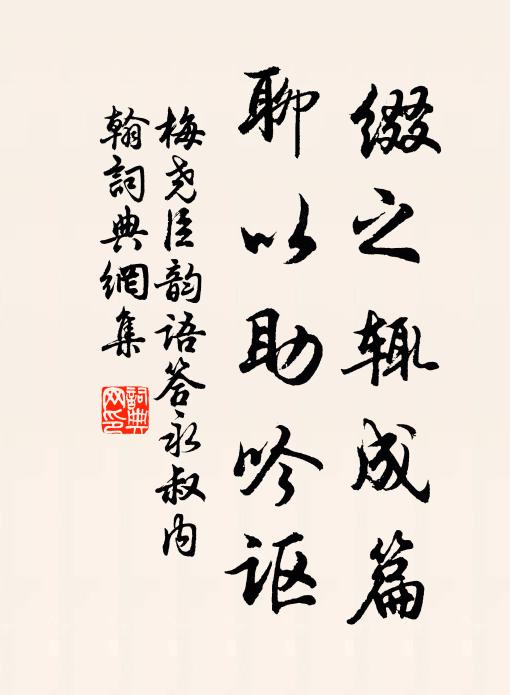 缀之辄成篇
聊以助吟讴
梅尧臣韵语答永叔内
翰词典網集
詞典网印